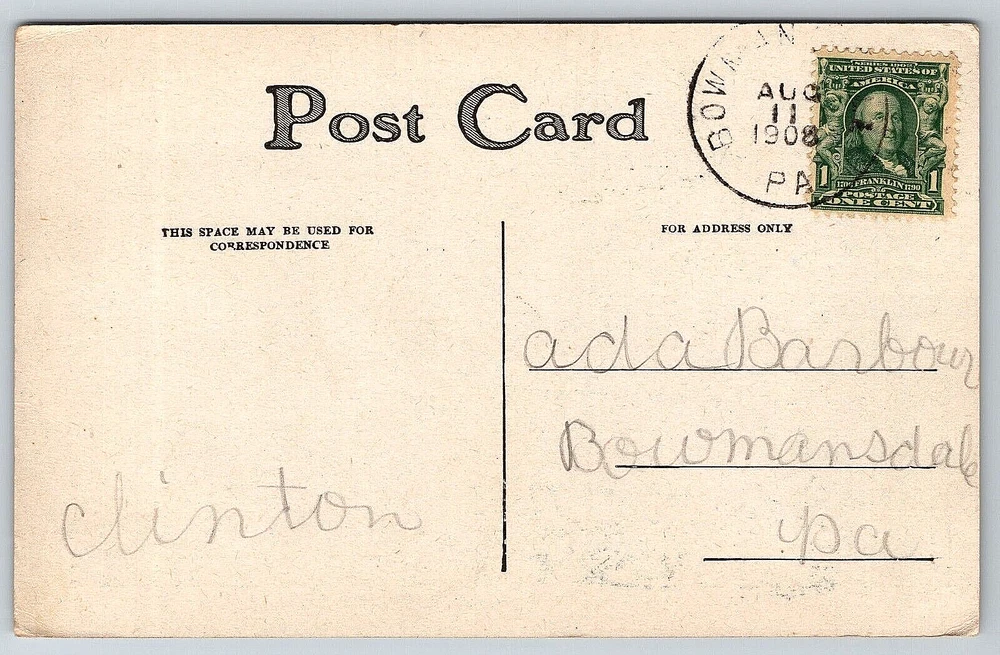 Post Card
BOWMAN
AUG
11
1908
PA
SERIES 1902
UNITED STATES OF
AMERICA
1706 FRANKLIN 1790
POSTAGE
1 1
ONE CENT
THIS SPACE MAY BE USED FOR
CORRESPONDENCE
FOR ADDRESS ONLY
ada Barbour
Bowmansdale
Pa
Clinton